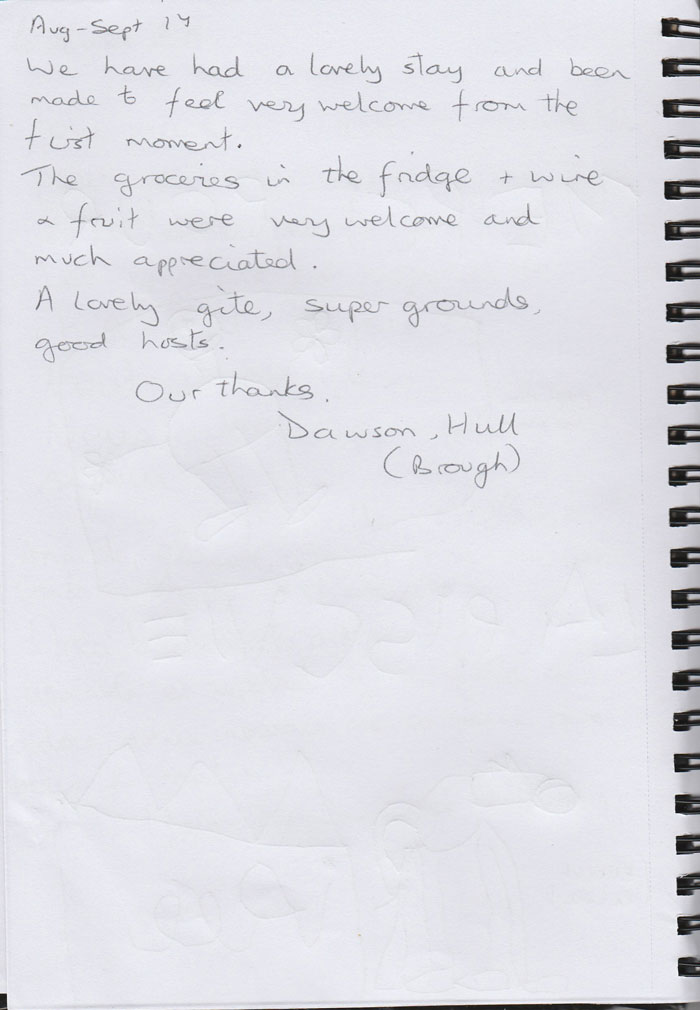 Aug-Sept 14
We have had a lovely stay and been
made to feel very welcome from the
first moment.
The groceries in the fridge + wine
& fruit were very welcome and
much appreciated.
A lovely gite, super grounds,
good hosts.
Our thanks.
Dawson, Hull
(Brough)
LA PISCINE